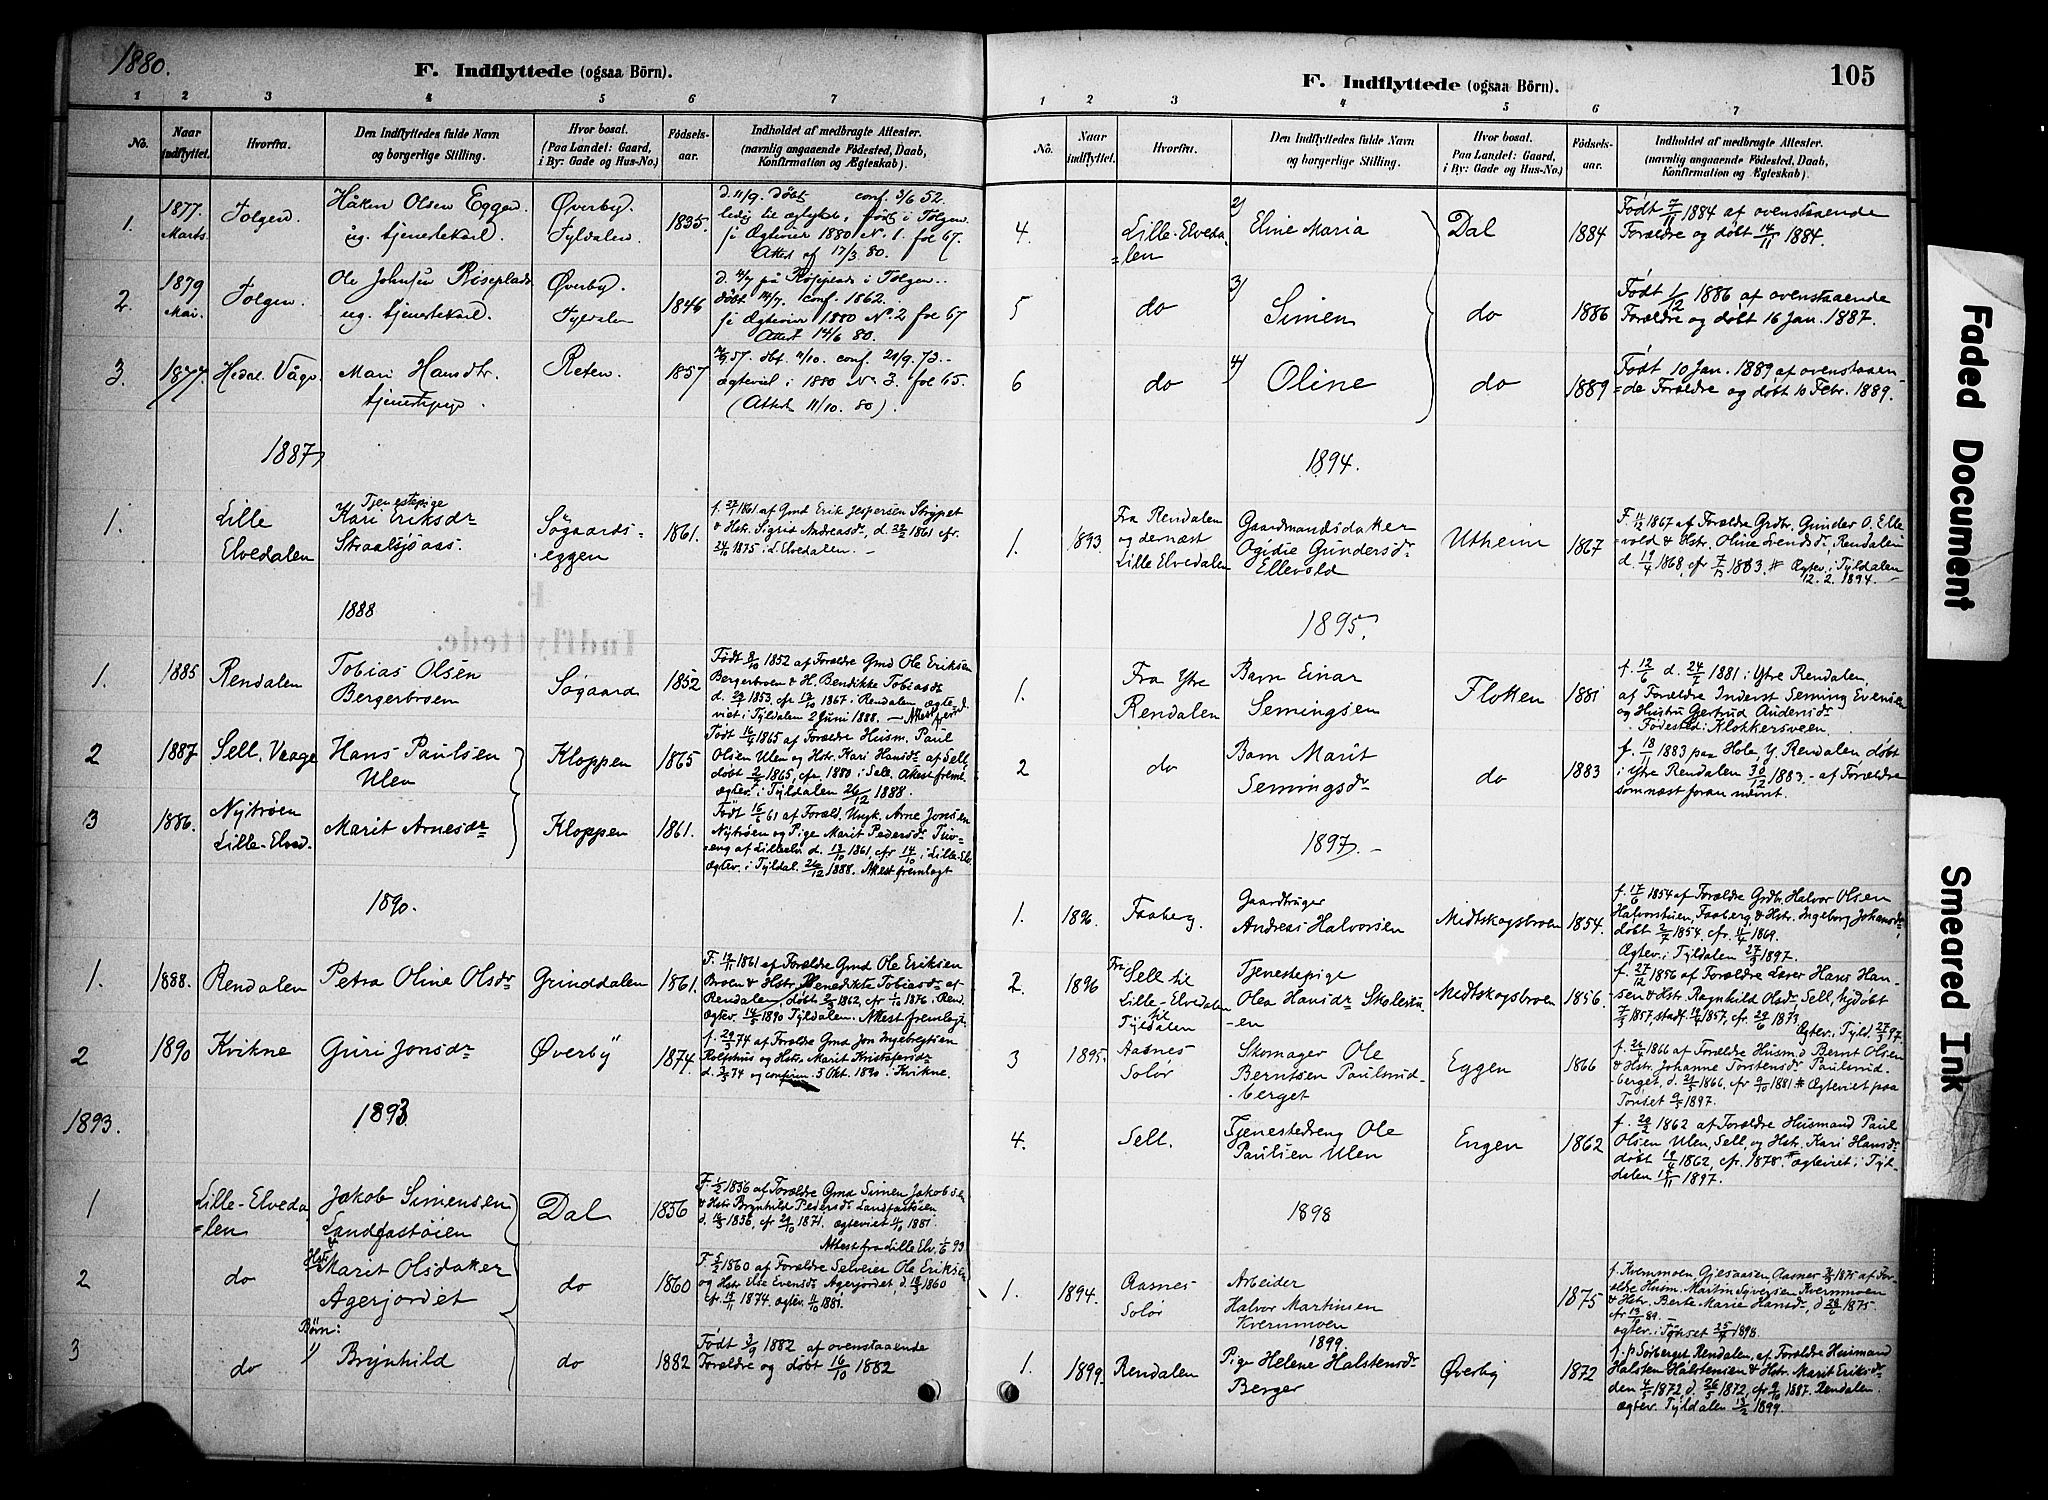 1880.
F. Indflyttede (ogsaa Börn).
1 2 3 4 5 6 7
No.
Naar indflyttet.
Hvorfra.
Den Indflyttedes fulde Navn
og borgerlige Stilling.
Hvor bosat.
(Paa Landet: Gaard,
i By: Gade og Hus-No.)
Födsels-
aar.
Indholdet af medbragte Attester.
(navnlig angaaende Födested, Daab,
Konfirmation og Ægteskab).
1. 1877. Marts. Tolgen Håken Olsen Eggen Øverby. 1835.
ug. tjenestekarl. Tyldalen.
d. 11/9. døbt conf. 3/6 52.
ledig til ægteskb., født i Tolgen.
Ægtevier 1880 N. 1. fol 67.
Attest af 17/3 80.
2. 1879 Mai. Tolgen. Ole Johnsen Røseplads Øverby. 1846
ug. tjenestekarl. Tyldalen
d. 4/7 på Røseplads i Tolgen.
døbt 14/7. conf. 1862.
Ægtevier 1880 N. 2 fol 67
Attest 14/6 80.
3. 1877. Hedal. Våge. Mari Hansdtr. Reten. 1857
tjenestepige.
57. dbt. 11/10. conf. 21/9. 73.
ægteviet i 1880 No 3. fol 65.
(Attest 11/10. 80).
1887
1. Lille Elvedalen Tjenestepige
Kari Eriksdr Straalsjøaas. Søgaards-
eggen 1861.
f. 27/1 1861 af Gmd Erik Jespersen Strypet
& Hstr. Sigrid Andreasdr. d. 22/2 1861 cfr.
24/10 1875 i L. Elvedalen.
1888
1. 1885 Rendalen Tobias Olsen
Bergerbroen Søgaard 1852
Født 8/10 1852 af Forældre Gmd Ole Eriksen
Bergerbroen & H. Bendikke Tobiasdr
d. 1853. cfr 1867. Rendalen ægte-
viet i Tyldalen 2 Juni 1888.
2 1887 Sell. Vaage Hans Paulsen
Ulen Kloppen 1865
Født 16/4 1865 af Forældre Husm. Paul
Olsen Ulen og Hstr. Kari Hansdr af Sell,
døbt 1865, cfr. 1880 i Sell. Attest freml.
ægtev. i Tyldalen 26/12 1888.
3 1886. Nytrøen
Lille-Elved. Marit Arnesdr Kloppen 1861.
Født 16/6 61 af Foræld. Ungk. Arne Jonsen
Nytrøen og Pige Marit Pedersdr
af Lilleelv. d. 1861 cfr 14/10 i Lille-Elv.
Ægtev. i Tyldal. 26/12 1888. Attest fremlagt
1890.
1. 1888. Rendalen Petra Oline Olsdr Grinddalen 1861.
F. 1861 af Forældre Gmd Ole Eriksen
Broen & Hstr. Benedikte Tobiasdr af
Rendalen, døbt 1862, cfr 1876. Rend.
Ægtev. 14/5 1890 Tyldalen. Attest fremlagt.
2 1890 Kvikne Guri Jonsdr Øverby 1874.
f. 29/3 74 af Forældre Gmd Jon Ingebregtsen
Rolfshus og Hstr. Marit Kristofersdr
d. 74 og confirm. 5 Okt. 1890 i Kvikne.
1893. 1893
1 Lille-Elveda
=len Jakob Simensen
Landgastøien Dal 1856
F. 1856 af Forældre Gmd Simen Jakobsen
& Hstr Brynhild Pedersdr Landgastøien
d. 1856, cfr 1871. ægteviet 1881.
Attest fra Lille Elv. 1/6 93.
2 do Marit Olsdatter
Agerjordet do 1860
F. 5/2 1860 af Forældre Selveier Ole Eriksen
og Hstr Else Evensdr Agerjordet, d. 1860
cfr. 1874. ægtev. 11/10 1881.
Børn:
3 do 1) Brynhild do 1882
Født 3/9 1882 af ovenstaaende
Forældre og døbt 16/10 1882
105
F. Indflyttede (ogsaa Börn).
1 2 3 4 5 6 7
No.
Naar indflyttet.
Hvorfra.
Den Indflyttedes fulde Navn
og borgerlige Stilling.
Hvor bosat.
Paa Landet: Gaard,
i By: Gade og Hus-No.)
Födsels-
aar.
Indholdet af medbragte Attester.
(navnlig angaaende Födested, Daab,
Konfirmation og Ægteskab).
4. Lille-Elveda-
=len 2) Eline Maria Dal 1884
Født 7/11 1884 af ovenstaaende
Forældre og døbt 14/11 1884.
5 do 3) Simen do 1886
Født 1/12 1886 af ovenstaaende
Forældre og døbt 16 Jan. 1887.
6 do 4) Oline do 1889
Født 10 Jan. 1889 af ovenstaaen-
=de Forældre og døbt 10 Febr. 1889.
1894.
1. 1893. Fra Rendalen
og dernæst
Lille Elvedalen Gaardmandsdatter
Ogidie Gundersdr
Ellevold Utheim 1867
F. 11/12 1867 af Forældre Grdbr. Gunder O. Elle
vold & Hstr. Oline Svendsdr, Rendalen
d. 19/4 1868 cfr 1883. # Ægtev. i Tyldalen
12. 2. 1894.
1895.
1. Fra Ytre
Rendalen Barn Einar
Semingsen Flotten 1881
f. 12/6 d. 24/7 1881 i Ytre Rendalen,
af Forældre Inderst Seming Evensen
og Hustru Gjertrud Audensdr
Fødested: Klokkersveen.
2 do Barn Marit
Semingsdr do 1883
f. 18/11 1883 paa Hole, Y. Rendalen døbt
i Ytre Rendalen 30/12 1883. - af Forældre
somnæst foran nævnt.
1897.
1. 1896. Faaberg. Gaardbruger
Andreas Halvorsen Midtskogsbroen 1854.
f. 17/6 1854 af Forældre Grdb. Halvor Olsen
Halvorstuen, Faaberg & Hstr. Ingeborg Johansdr,
døbt 2/7 1854. cfr. 11/4 1869.
Ægtev. i Tyldalen 27/3 1897.
2. 1896 Fra Sell til
Lille-Elvedalen
til
Tyldalen Tjenestepige
Olea Hansdr Skolestu
-en Midtskogsbroen 1856.
f. 27/12 1856 af Forældre Lærer Hans Han-
sen & Hstr. Ragnhild Olsdr, Sell, hjdøbt
1857, stadf. 1857, cf. 29/6 1873
Ægtev. i Tyld. 27/3 97.
3 1895. Aasnes
Solør Skomager Ole
Berntsen Paulsrud-
berget Eggen 1866
f. 1866 af Forældre Husmd Bernt Olsen
& Hstr. Johanne Torstensdr Paulsrud-
berget, d. 1866, cfr 9/10 1881 # Ægteviet paa
Tønset 1897.
4. Sell. Tjenestedreng Ole
Paulsen Ulen Engen 1862
f. 1862 af Forældre Husmand Paul
Olsen Ulen, Sell, og Hstr. Kari Hansdr
døbt 19/4 1862, cfr. 1878. # ægteviet i Tyl-
dalen 1897.
1898
1. 1894. Aasnes
Solør Arbeider
Halvor Martinsen
Kvernmoen 1875
f. Kvernmoen Gjesaasen Aasnes 1875 af For-
ældre Husm. Martin Syversen Kvernmoen
& Hstr. Berte Marie Hansdr, d 1875.
cfr 89.
ægtev. i Tønset 1898.
1899.
1. 1899. Rendalen Pige Helene Halstensdr
Berger Øverby 1872
f. p Søberget Rendalen, af Forældre Husmand
Halsten Halstensen & Hstr. Marit Eriksdr
den 1872, d. 26/5 1872, cfr 9/10 1887. Rendalen.
ægtev. Tyldalen 1899.
Faded Document
Smeared Ink